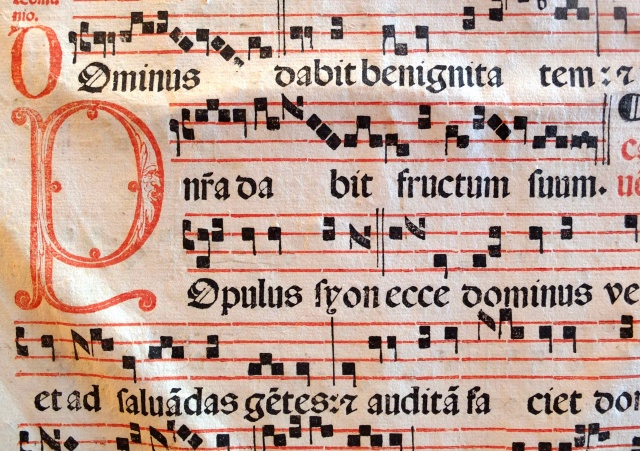 nio.
DOminus dabit benignita tem: ⁊
nr̃a da bit fructum ſuum.
POpulus ſyon ecce dominus ve
et ad ſaluãdas gẽtes: ⁊ auditã fa ciet do